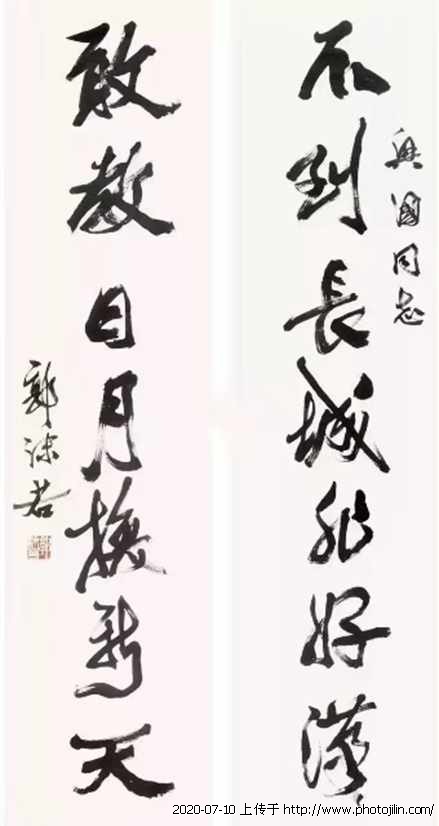 興國同志
不到長城非好漢
敢教日月換新天
郭沫若
2020-07-10 上传于 http://www.photojilin.com/